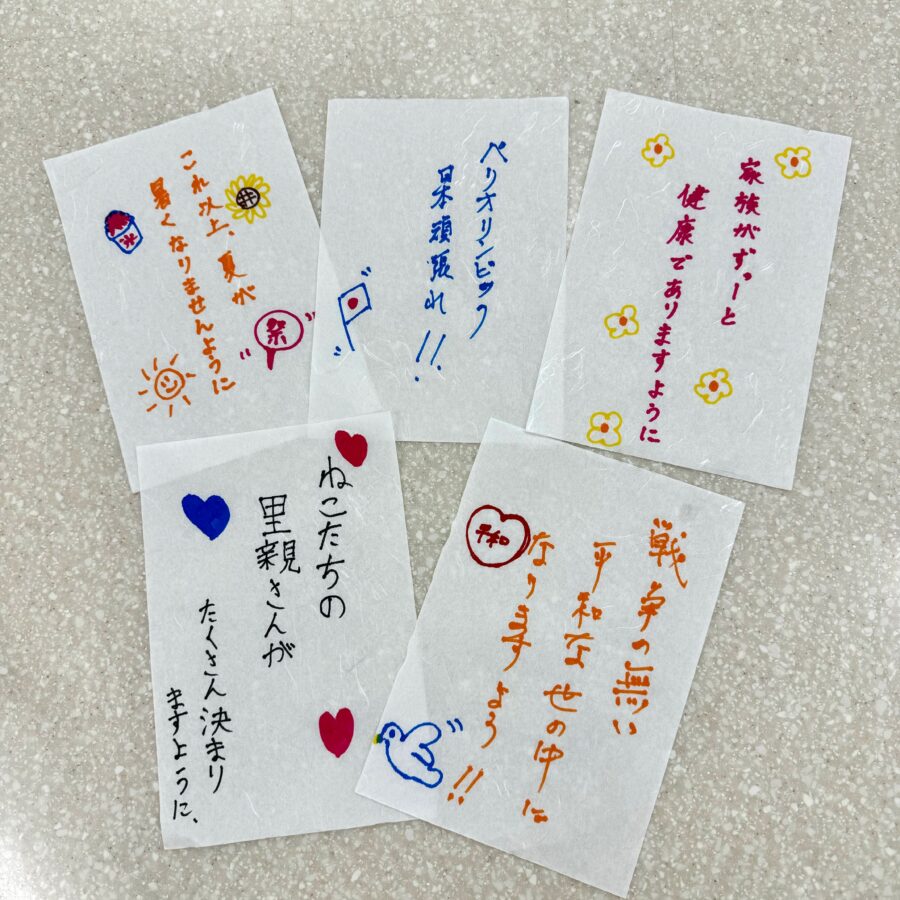 これ以上、夏が
暑くなりませんように
氷
祭
パリオリンピック
日本頑張れ!!
家族がずっーと
健康でありますように
ねこたちの
里親さんが
たくさん決まり
ますように、
戦争の無い
平和な世の中に
なりますよう!!
平和